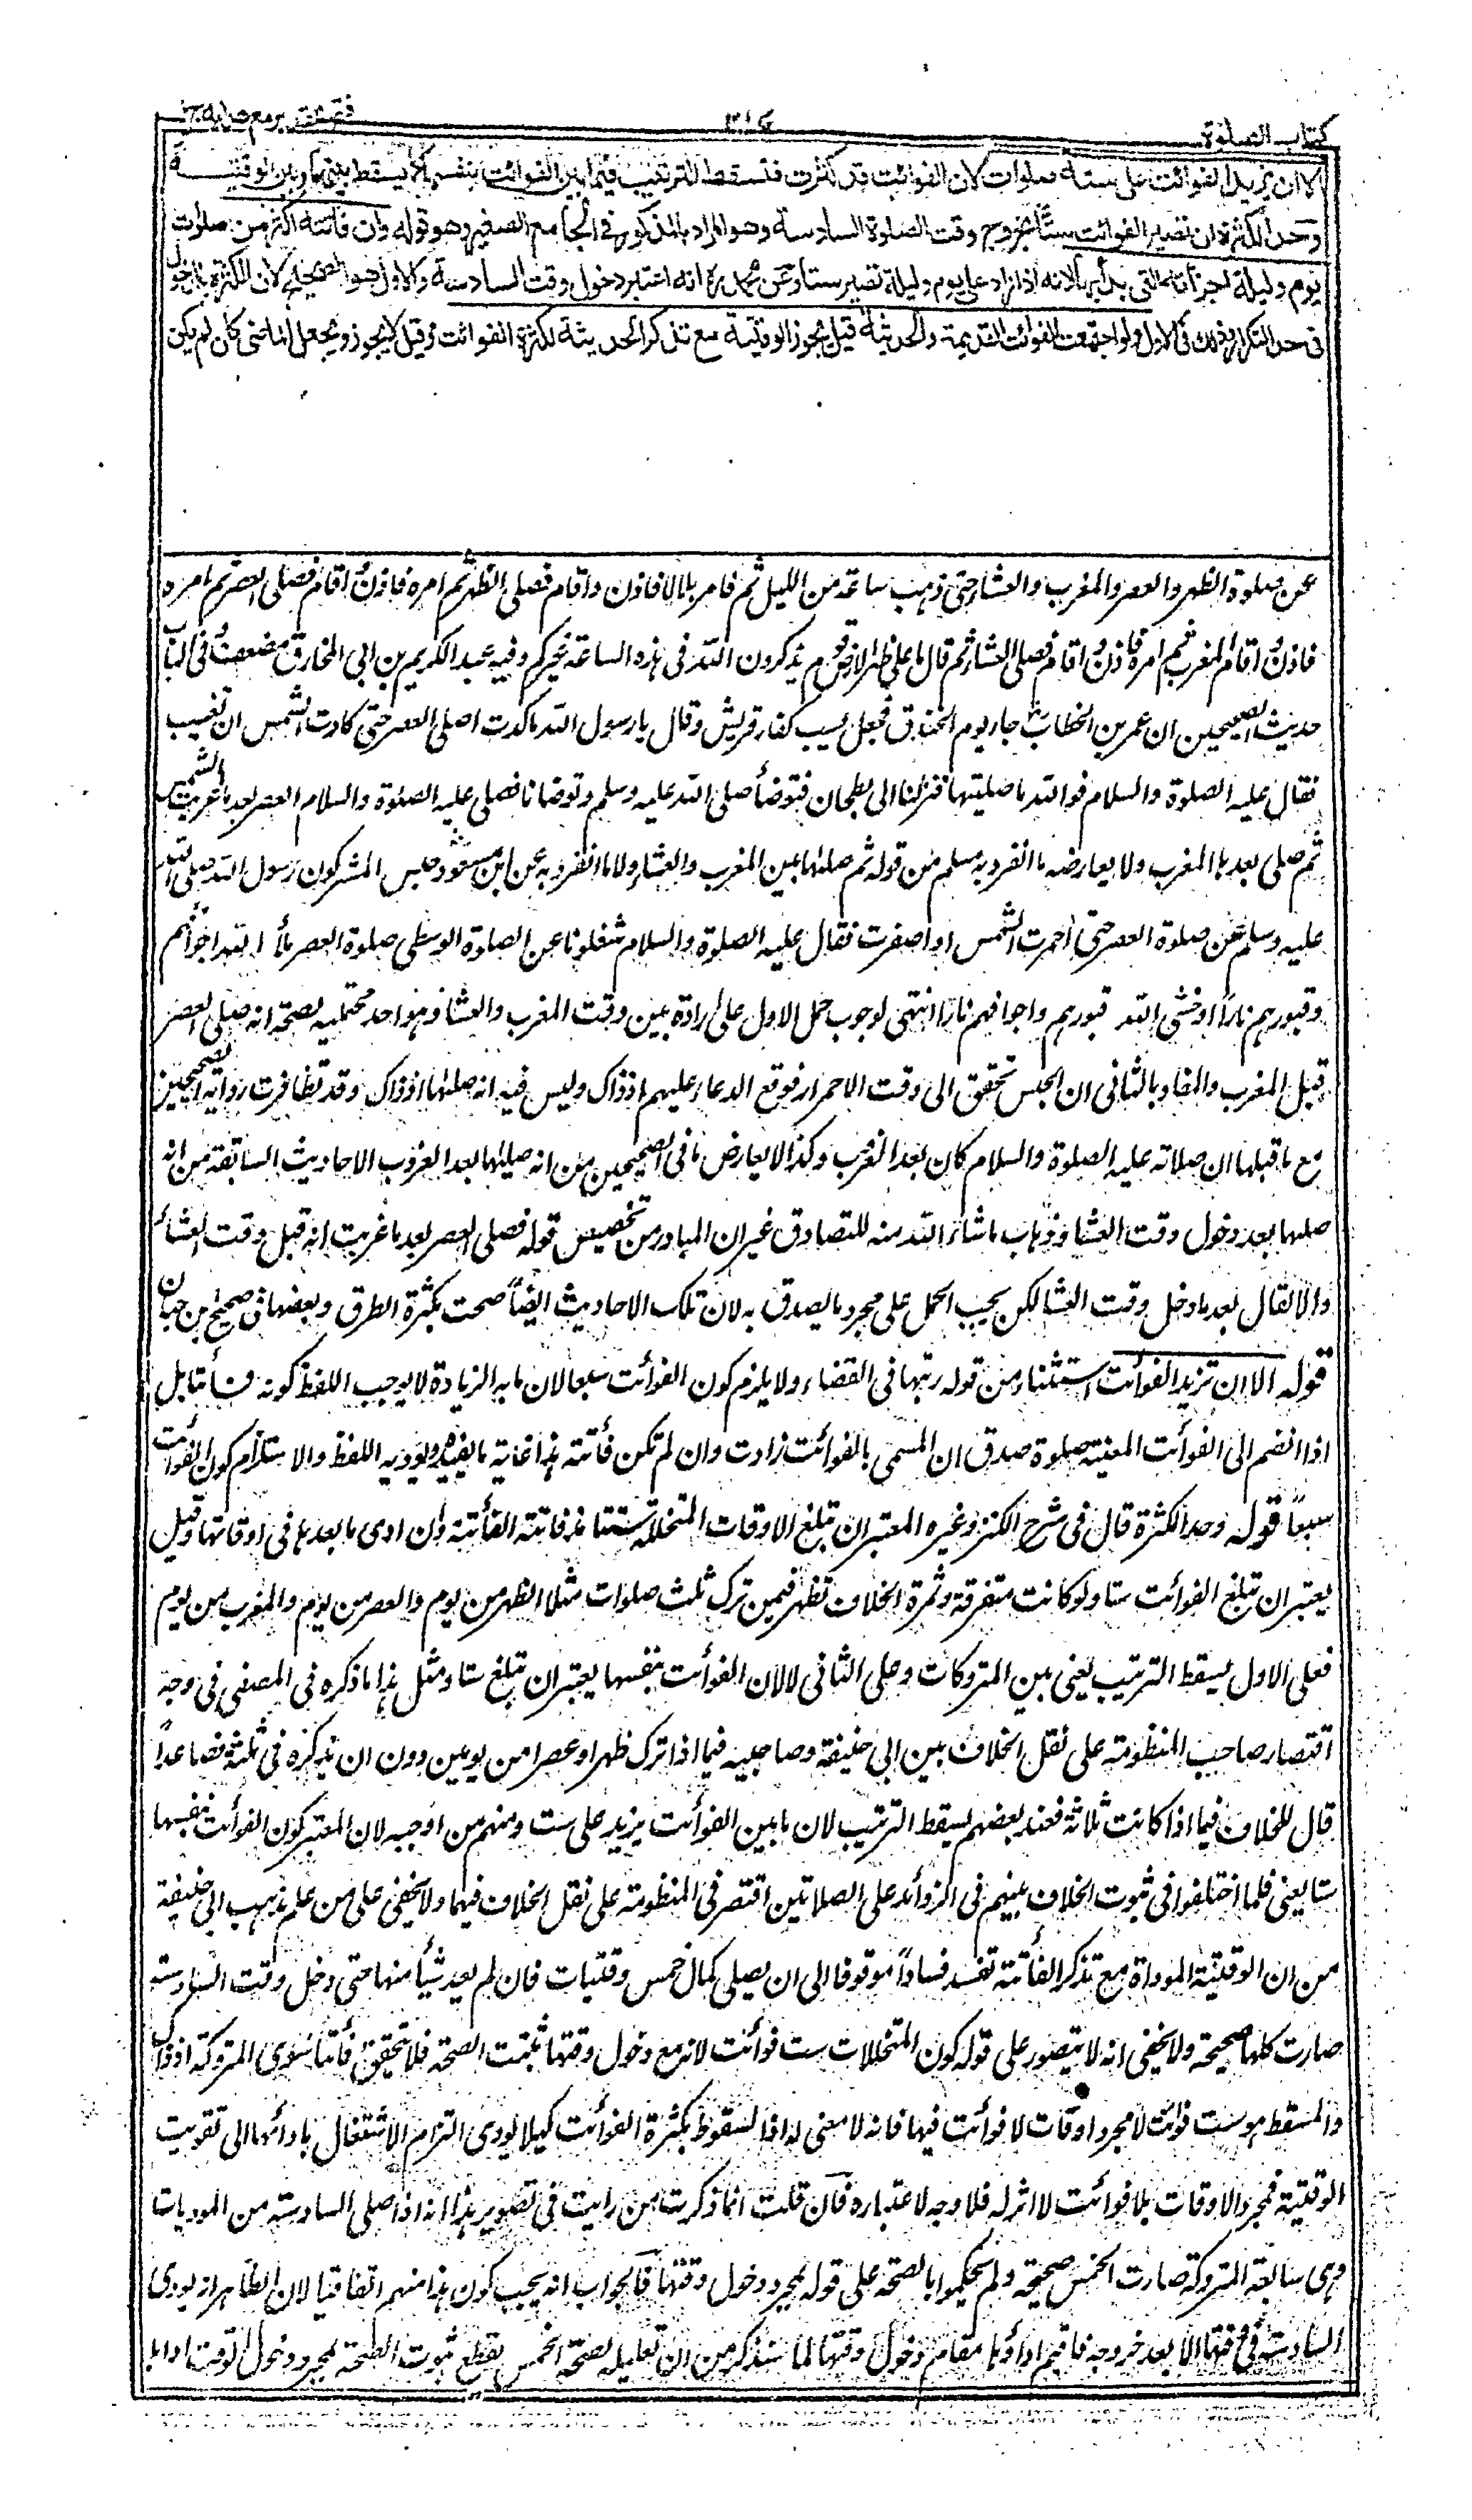 كتاب الصلوة
فتح القدير مع هدايه ج ١
الا ان يزيد الفوائت على ستة صلوات لان الفوائت قد كثرت فتسقط الترتيب فيما بين الفوائت بنفسها كما يسقط بينها وبين الوقتية
وحد الكثرة ان تصير الفوائت ستا بخروج وقت الصلوة السادسة وهو المراد بالمذكور في الجامع الصغير وهو قوله وان فاتته اكثر من صلوات
يوم وليلة اجزأته التي بدأ بها لانه اذا زاد على يوم وليلة تصير ستا وعن محمد ره انه اعتبر دخول وقت السادسة والاول هو الصحيح لان الكثرة بالدخول
في حد التكرار وذلك في الاول ولو اجتمعت الفوائت القديمة والحديثة قيل يجوز الوقتية مع تذكر الحديثة لكثرة الفوائت وقيل لا يجوز ويجعل الماضى كان لم يكن
عن صلوة الظهر والعصر والمغرب والعشاء حتى ذهب ساعة من الليل ثم فامر بلالا فاذن واقام فصلى الظهر ثم امره فاذن واقام فصلى العصر ثم امره
فاذن واقام المغرب ثم امره فاذن واقام فصلى العشاء ثم قال ما على ظهر الارض قوم يذكرون الله في هذه الساعة غيركم وفيه عبد الكريم بن ابي المخارق مضعف وفي الباب
حديث الصحيحين ان عمر بن الخطاب جاء يوم الخندق فجعل يسب كفار قريش وقال يا رسول الله ما كدت اصلى العصر حتى كادت الشمس ان تغيب
فقال عليه الصلوة والسلام فوالله ما صليتها فنزلنا الى بطحان فتوضأ صلى الله عليه وسلم وتوضانا فصلى عليه الصلوة والسلام العصر بعد ما غربت الشمس
ثم صلى بعدها المغرب ولا يعارضه ما انفرد به مسلم من قوله ثم صلاها بين المغرب والعشاء ولا ما انفرد به عن ابن مسعود حبس المشركون رسول الله صلى الله
عليه وسلم عن صلوة العصر حتى احمرت الشمس او اصفرت فقال عليه الصلوة والسلام شغلونا عن الصلوة الوسطى صلوة العصر ملأ الله اجوافهم
وقبورهم نارا او حشى الله قبورهم واجوافهم نارا انتهى لوجوب حمل الاول على ارادة بين وقت المغرب والعشاء وهو احد محتمليه لصحة انه صلى العصر
قبل المغرب والمفاد بالثاني ان الحبس تحقق الى وقت الاحمرار فوقع الدعاء عليهم اذ ذاك وليس فيه انه صلاها اذ ذاك وقد تظافرت رواية الصحيحين
مع ما قبلها ان صلاته عليه الصلوة والسلام كان بعد الغروب وكذا لا يعارض ما في الصحيحين من انه صليها بعد الغروب الاحاديث السابقة من انه
صليها بعد دخول وقت العشاء وذهاب ما شاء الله منه للتصادق غير ان المبادر من تخصيص قوله فصلى العصر بعد ما غربت انه قبل وقت العشاء
والا لقال بعد ما دخل وقت العشا لكن يجب الحمل على مجرد ما يصدق به لان تلك الاحاديث ايضا صحت بكثرة الطرق وبعضها في صحيح بن حبان
قوله الا ان تزيد الفوائت استثناء من قوله رتبها في القضاء ولا يلزم كون الفوائت سبعا لان ما به الزيادة لا يوجب اللفظ كونه فائتا بل
اذا انضم الى الفوائت المعينة صلوة صدق ان المسمى بالفوائت زادت وان لم تكن فائتة هذا غاية ما يفيده ويؤديه اللفظ والا استلزم كون الفوائت
سبعا قوله وحد الكثرة قال في شرح الكنز وغيره المعتبر ان تبلغ الاوقات المتخللة ستة مذ فاتته الفائتة وان ادى ما بعدها في اوقاتها وقيل
يعتبر ان تبلغ الفوائت ستا ولو كانت متفرقة وثمرة الخلاف تظهر فيمن ترك ثلث صلوات مثلا الظهر من يوم والعصر من يوم والمغرب من يوم
فعلى الاول يسقط الترتيب يعنى بين المتروكات وعلى الثاني لا لان الفوائت بنفسها يعتبر ان تبلغ ستا ومثل هذا ما ذكره في المصفى في وجه
اقتصار صاحب المنظومة على نقل الخلاف بين ابي حنيفة وصاحبيه فيما اذا ترك ظهرا وعصرا من يومين دون ان يذكره في ثلثة فصاعدا
قال للخلاف فيما اذا كانت ثلاثة فعند بعضهم يسقط الترتيب لان ما بين الفوائت يزيد على ست ومنهم من اوجبه لان المعتبر كون الفوائت بنفسها
ستا يعنى فلما اختلفوا في ثبوت الخلاف بينهم في الزوائد على الصلاتين اقتصر في المنظومة على نقل الخلاف فيهما ولا يخفى على من علم مذهب ابي حنيفة
من ان الوقتية الموداة مع تذكر الفائتة تفسد فسادا موقوفا الى ان يصلى كمال خمس وقتيات فان لم يعد شيأ منها حتى دخل وقت السادسة
صارت كلها صحيحة ولا يخفى انه لا يتصور على قوله كون المتخللات ست فوائت لانه مع دخول وقتها ثبتت الصحة فلا يتحقق فائتا سوى المتروكة اذ ذاك
والمسقط هو ست فوائت لا مجرد اوقات لا فوائت فيها فانه لا معنى له اذ السقوط بكثرة الفوائت كيلا يودى التزام الاشتغال بادائها الى تفويت
الوقتية فمجرد الاوقات بلا فوائت لا اثر له فلا وجه لاعتباره فان قلت انما ذكرت من رايت في تصوير هذا انه اذا صلى السادسة من الموديات
وهى سابعة المتروكة صارت الخمس صحيحة ولم يحكموا بالصحة على قوله بمجرد دخول وقتها فالجواب انه يجب كون هذا منهم اتفاقيا لان الظاهر انه يودى
السادسة في وقتها لا بعد خروجه فاقيم اداؤها مقام دخول وقتها لما سنذكر من ان تعليله لصحة الخمس يقطع بثبوت الصحة بمجرد دخول الوقت اداها